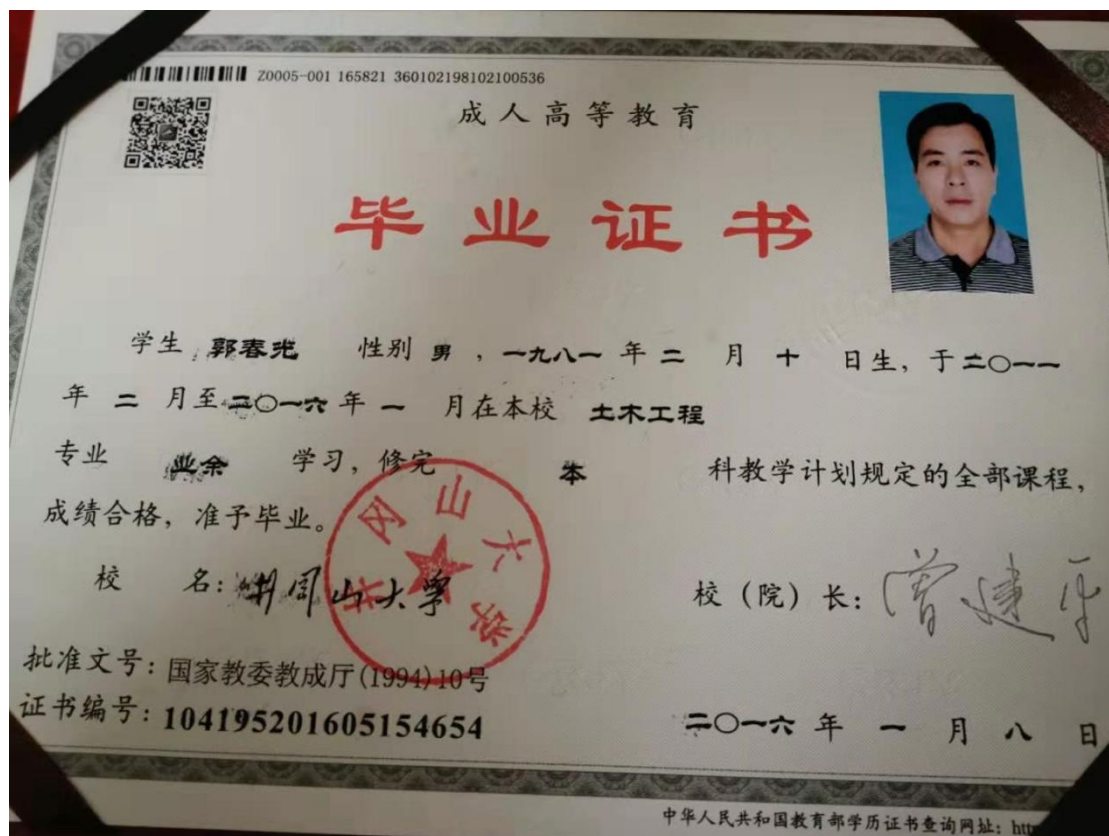 Z0005-001 165821 360102198102100536
成人高等教育
毕业证书
学生 郭春光 性别 男 ，一九八一 年 二 月 十 日生，于二〇一一
年 二 月至二〇一六年 一 月在本校 土木工程
专业 业余 学习，修完 本 科教学计划规定的全部课程，
成绩合格，准予毕业。
校 名：井冈山大学
校（院）长：曾建平
井冈山大学
批准文号：国家教委教成厅(1994)10号
证书编号：104195201605154654
二〇一六 年 一 月 八 日
中华人民共和国教育部学历证书查询网址：